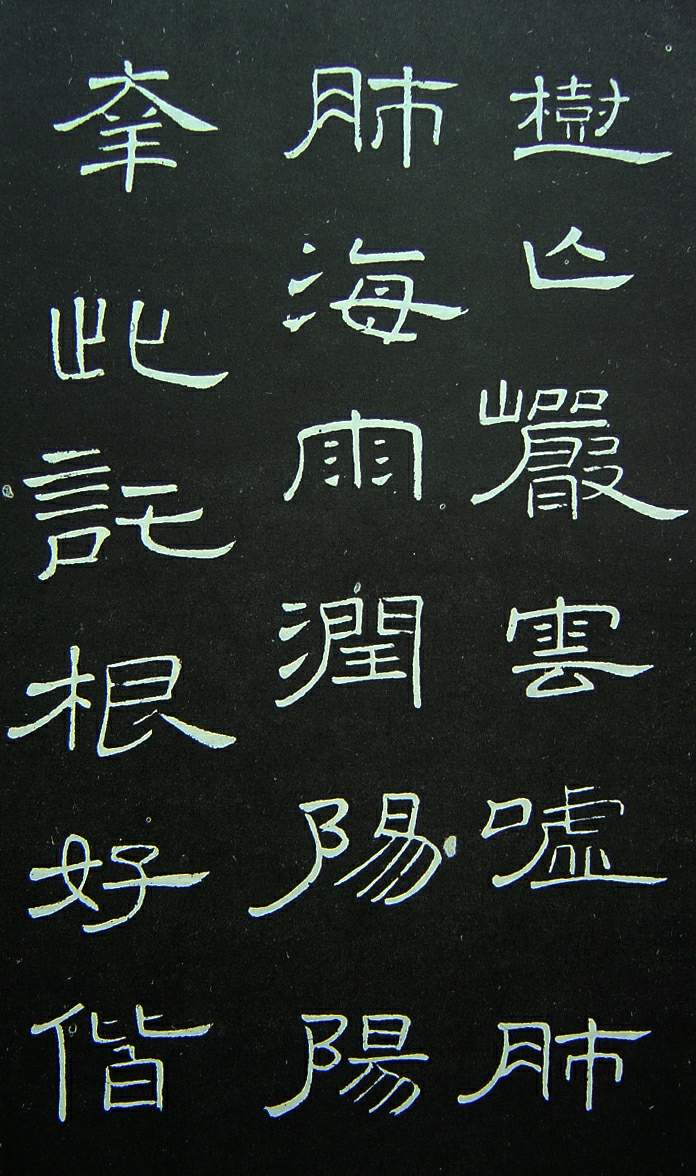 樹亾巖雲嘘肺
肺海雨潤陽陽
羍此託根好偕